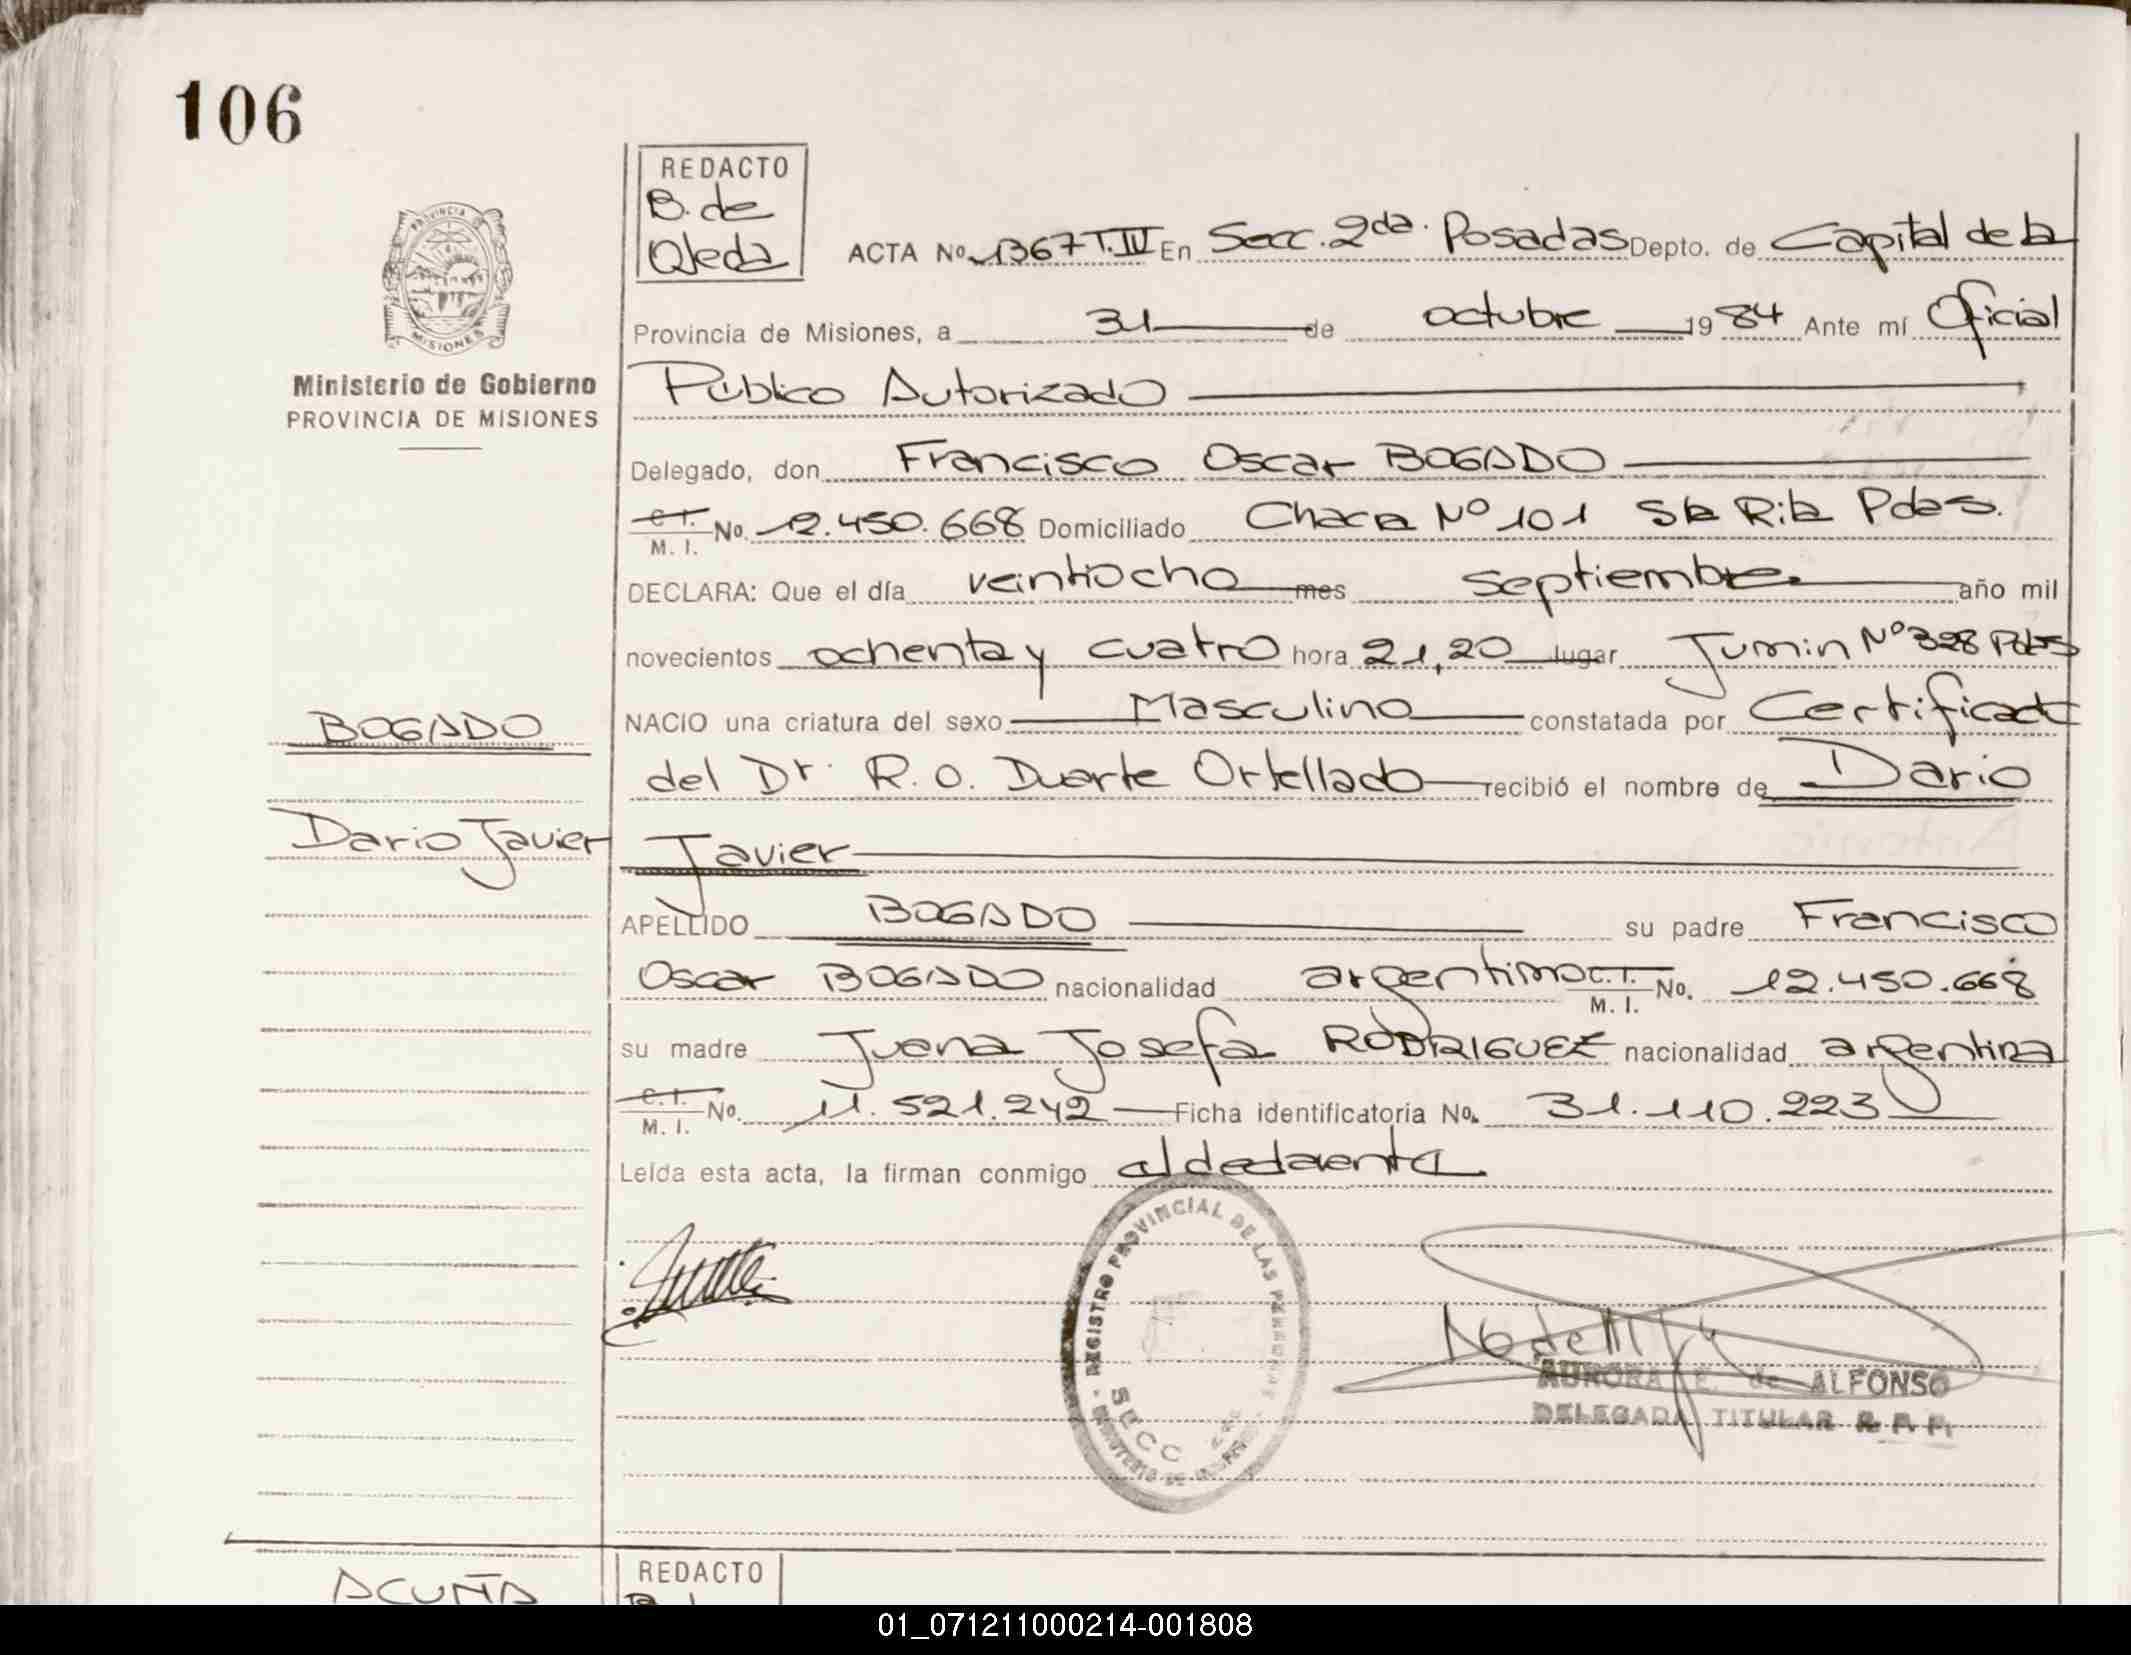 106
PROVINCIA DE
MISIONES
Ministerio de Gobierno
PROVINCIA DE MISIONES
REDACTO
B. de
Ojeda
ACTA No. 1367 T. IV En Secc. 2da. Posadas Depto. de Capital de la
Provincia de Misiones, a 31 de octubre 1984 Ante mí Oficial
Público Autorizado
Delegado, don Francisco Oscar BOGADO
C.I. M. I. No. 12.450.668 Domiciliado Chacra Nº 101 Sta Rita Pdas.
DECLARA: Que el día veintiocho mes septiembre año mil
novecientos ochenta y cuatro hora 21,20 lugar Junin Nº 328 Pdas
NACIO una criatura del sexo Masculino constatada por Certificado
del Dr. R. O. Duarte Ortellado recibió el nombre de Dario
Javier
BOGADO
Dario Javier
APELLIDO BOGADO su padre Francisco
Oscar BOGADO nacionalidad argentino C.I. M. I. No. 12.450.668
su madre Juana Josefa RODRIGUEZ nacionalidad argentina
C.I. M. I. No. 11.521.242 Ficha identificatoria No. 31.110.223
Leída esta acta, la firman conmigo el declarante
REGISTRO PROVINCIAL DE LAS PERSONAS
SECC
AURORA E. de ALFONSO
DELEGADA TITULAR R. P. P.
ACUÑA
REDACTO
01_071211000214-001808